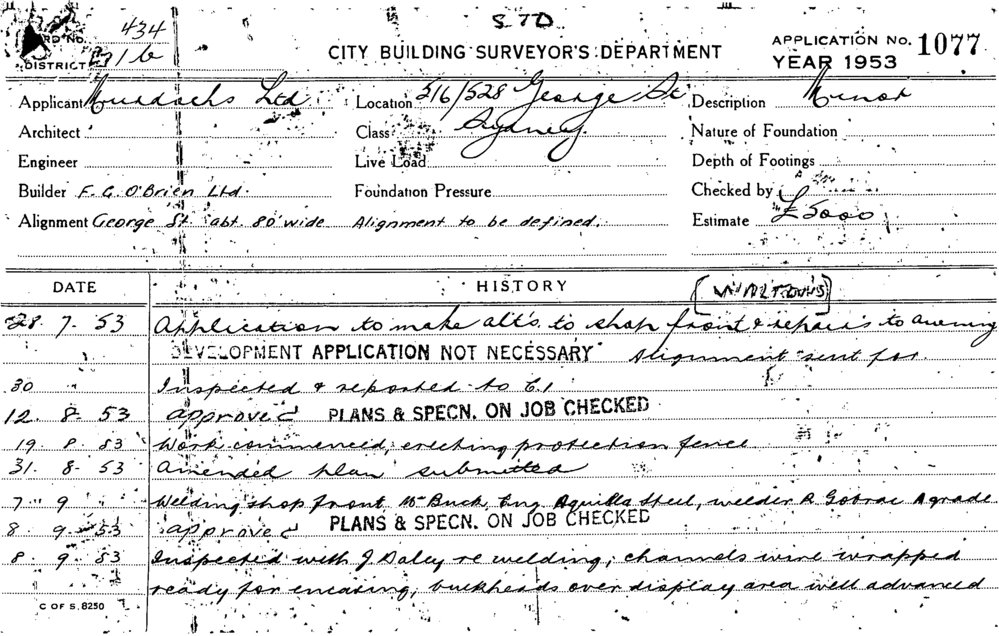 S 7D
CARD No. 434
CITY BUILDING SURVEYOR'S DEPARTMENT
APPLICATION No. 1077
DISTRICT /6
YEAR 1953
Applicant Murdochs Ltd. Location 516/528 George St Description Minor
Architect Class Sydney Nature of Foundation
Engineer Live Load Depth of Footings
Builder F. G. O'Brien Ltd. Foundation Pressure Checked by
Alignment George St. abt. 80' wide Alignment to be defined. Estimate £5000
DATE HISTORY [WINDOWS]
28. 7. 53 Application to make alt's. to shop front & repairs to awning
DEVELOPMENT APPLICATION NOT NECESSARY Alignment sent for.
30 " Inspected & reported to C.I
12. 8. 53 approved PLANS & SPECN. ON JOB CHECKED
19. 8. 53 Work commenced; erecting protection fence
31. 8. 53 Amended plan submitted
7. 9 Welding shop front Mr Buck, Eng Aquilla Steel, welder R Gobrac A grade
8 9 53 approved PLANS & SPECN. ON JOB CHECKED
8. 9 53 Inspected with J Daley re welding; channels wire wrapped
ready for encasing; bulkheads over display area well advanced
C OF S. 8250